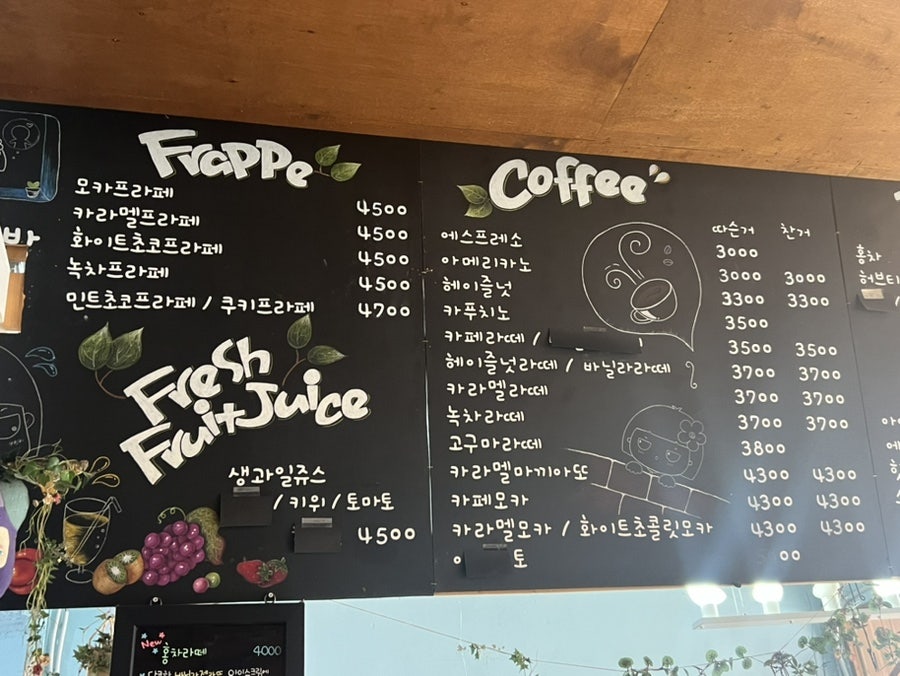 Frappe
모카프라페 4500
카라멜프라페 4500
화이트초코프라페 4500
녹차프라페 4500
민트초코프라페 / 쿠키프라페 4700
Fresh
Fruit Juice
생과일쥬스
/ 키위 / 토마토
4500
New
홍차라떼 4000
Coffee
따슨거 찬거
에스프레소 3000
아메리카노 3000 3000
헤이즐넛 3300 3300
카푸치노 3500
카페라떼 / 3500 3500
헤이즐넛라떼 / 바닐라라떼 3700 3700
카라멜라떼 3700 3700
녹차라떼 3700 3700
고구마라떼 3800
카라멜마끼아또 4300 4300
카페모카 4300 4300
카라멜모카 / 화이트초콜릿모카 4300 4300
토 00
홍차
허브티